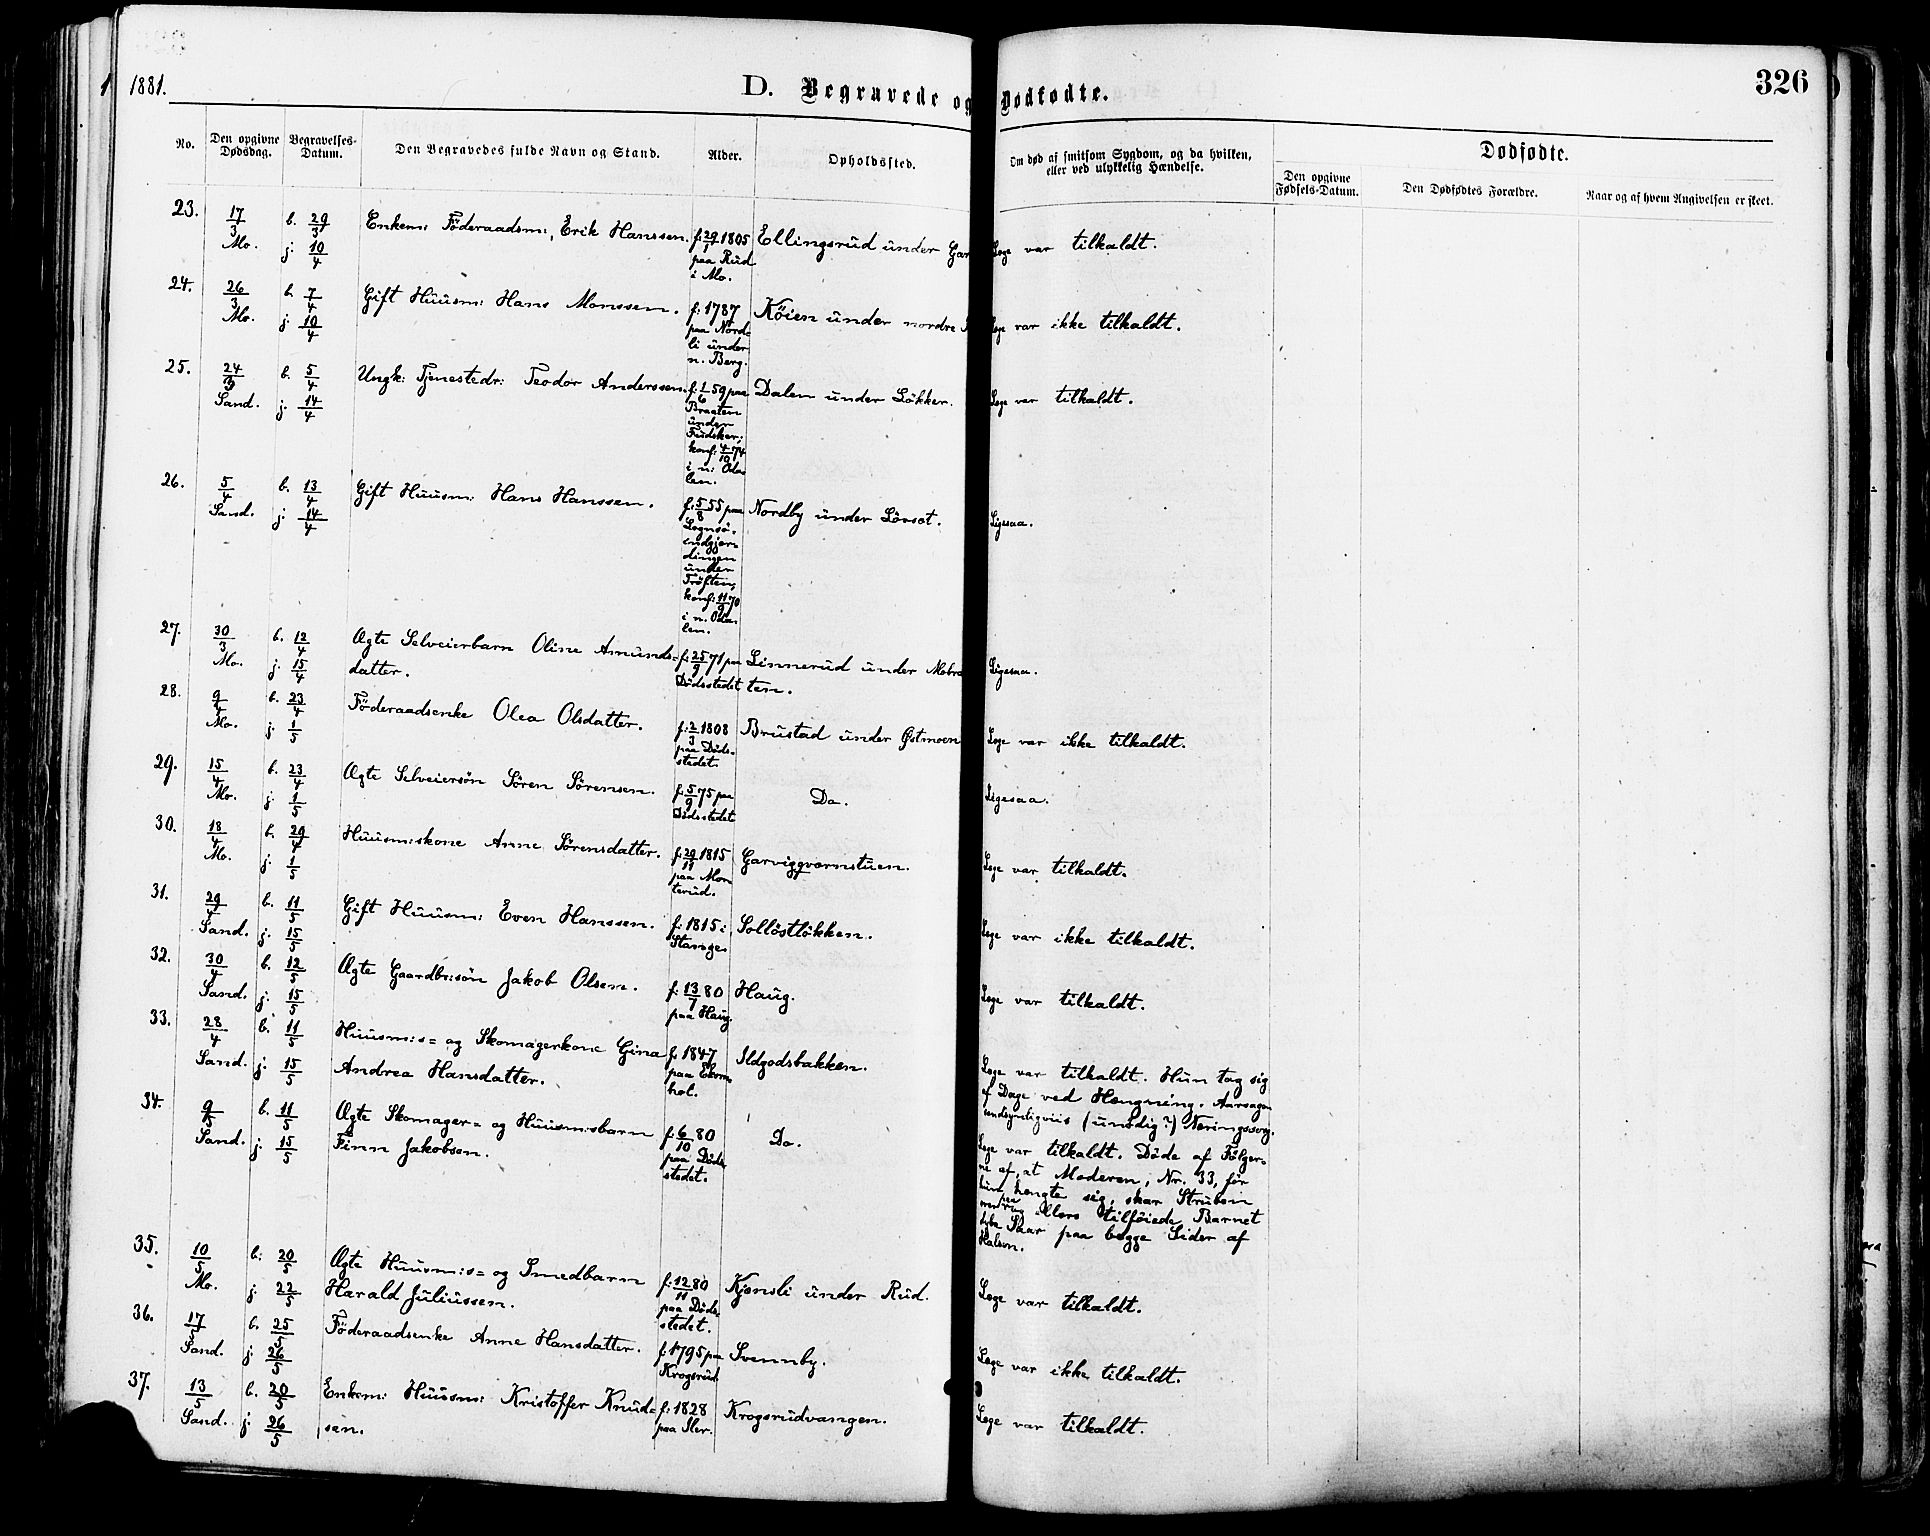 1881.
D. Begravede og Dødfødte.
326
No.
Den opgivne Dødsdag.
Begravelses-Datum.
Den Begravedes fulde Navn og Stand.
Alder.
Opholdssted.
Om død af smitsom Sygdom, og da hvilken, eller ved ulykkelig Hændelse.
Dødfødte.
Den opgivne Fødsels-Datum.
Den Dødfødtes Forældre.
Naar og af hvem Angivelsen er skeet.
23. 17/3 b. 29/3 Enkem: Föderaadsm:, Erik Hanssen. f: 29/1 1805 Ellingsrud under Læge var tilkaldt.
Mo. j. 10/4 paa Rud
i Mo.
24. 26/3 b. 7/4 Gift Huusm: Hans Monssen. f: 1787 Köien under nordre Læge var ikke tilkaldt.
Mo. j. 10/4 paa Nord-
li under
n. Berg.
25. 24/3 b. 5/4 Ungk: Tjenestedr: Teodor Anderssen. f: 1/6 59 paa Dalen under Lökker. Læge var tilkaldt.
Sand. j. 14/4 Braaten
under
konf: 4/10 74
i n: Oda-
len.
26. 5/4 b. 13/4 Gift Huusm: Hans Hanssen. f: 5/8 55 paa Nordby under Lörset. Ligesaa.
Sand. j. 14/4
under
Tröften,
konf: 11/9 70
i n. Oda-
len.
27. 30/3 b. 12/4 Ægte Selveierbarn Oline Amunds= f: 25/9 71 paa Linnerud under Ligesaa.
Mo. j. 15/4 datter. Dödsstedet ten.
28. 9/4 b. 23/4 Föderaadsenke Olea Olsdatter. f: 2/3 1808 Brustad under Østmoen Læge var ikke tilkaldt.
Mo. j. 1/5 paa Döds-
stedet.
29. 15/4 b. 23/4 Ægte Selveiersön Sören Sörensen. f: 5/9 75 paa Do. Ligesaa.
Mo. j. 1/5 Dödsstedet
30. 18/4 b. 29/4 Huusm:skone Anne Sörensdatter. f: 29/11 1815 Garviggværnstuen. Læge var tilkaldt.
Mo. j. 1/5 paa Mon-
terud.
31. 29/4 b. 11/5 Gift Huusm: Even Hanssen. f: 1815 i Sollöstlökken. Læge var ikke tilkaldt.
Sand. j. 15/5 Stange.
32. 30/4 b. 12/5 Ægte Gaardbr:sön Jakob Olsen. f: 13/7 80 Haug. Læge var tilkaldt.
Sand. j. 15/5 paa Haug.
33. 28/4 b. 11/5 Huusm:s= og Skomagerkone Gina f. 1847 Ildgodsbakken. Læge var tilkaldt. Hun tog sig
Sand. j. 15/5 Andrea Hansdatter. paa Ekorn-
hol. af Dage ved Hængning. Aarsagen
sandsynligviis (unödig?) Næringssorg.
34. 9/5 b. 11/5 Ægte Skomager= og Huusm:sbarn f: 6/10 80 Do. Læge var tilkaldt. Döde af Fölger-
Sand. j. 15/5 Finn Jakobsen. paa Döds-
stedet. ne af, at Moderen, Nr. 33, för
hun hængte sig, skar Struben
paa
ellers tilföiede Barnet
dybe Saar paa begge Sider af
Halsen.
35. 10/5 b. 20/5 Ægte Huusm:s= og Smedbarn f: 12/11 80 Kjensli under Rud. Læge var tilkaldt.
Mo. j. 22/5 Harald Juliussen. paa Döds-
stedet.
36. 17/5 b. 25/5 Föderaadsenke Anne Hansdatter. f: 1795 paa Svennby. Læge var ikke tilkaldt.
Sand. j. 26/5 Krogsrud
37. 13/5 b. 20/5 Enkem: Huusm: Kristoffer Knud= f: 1828 Krogsrudvangen. Læge var tilkaldt.
Sand. j. 26/5 sen. paa Sler.